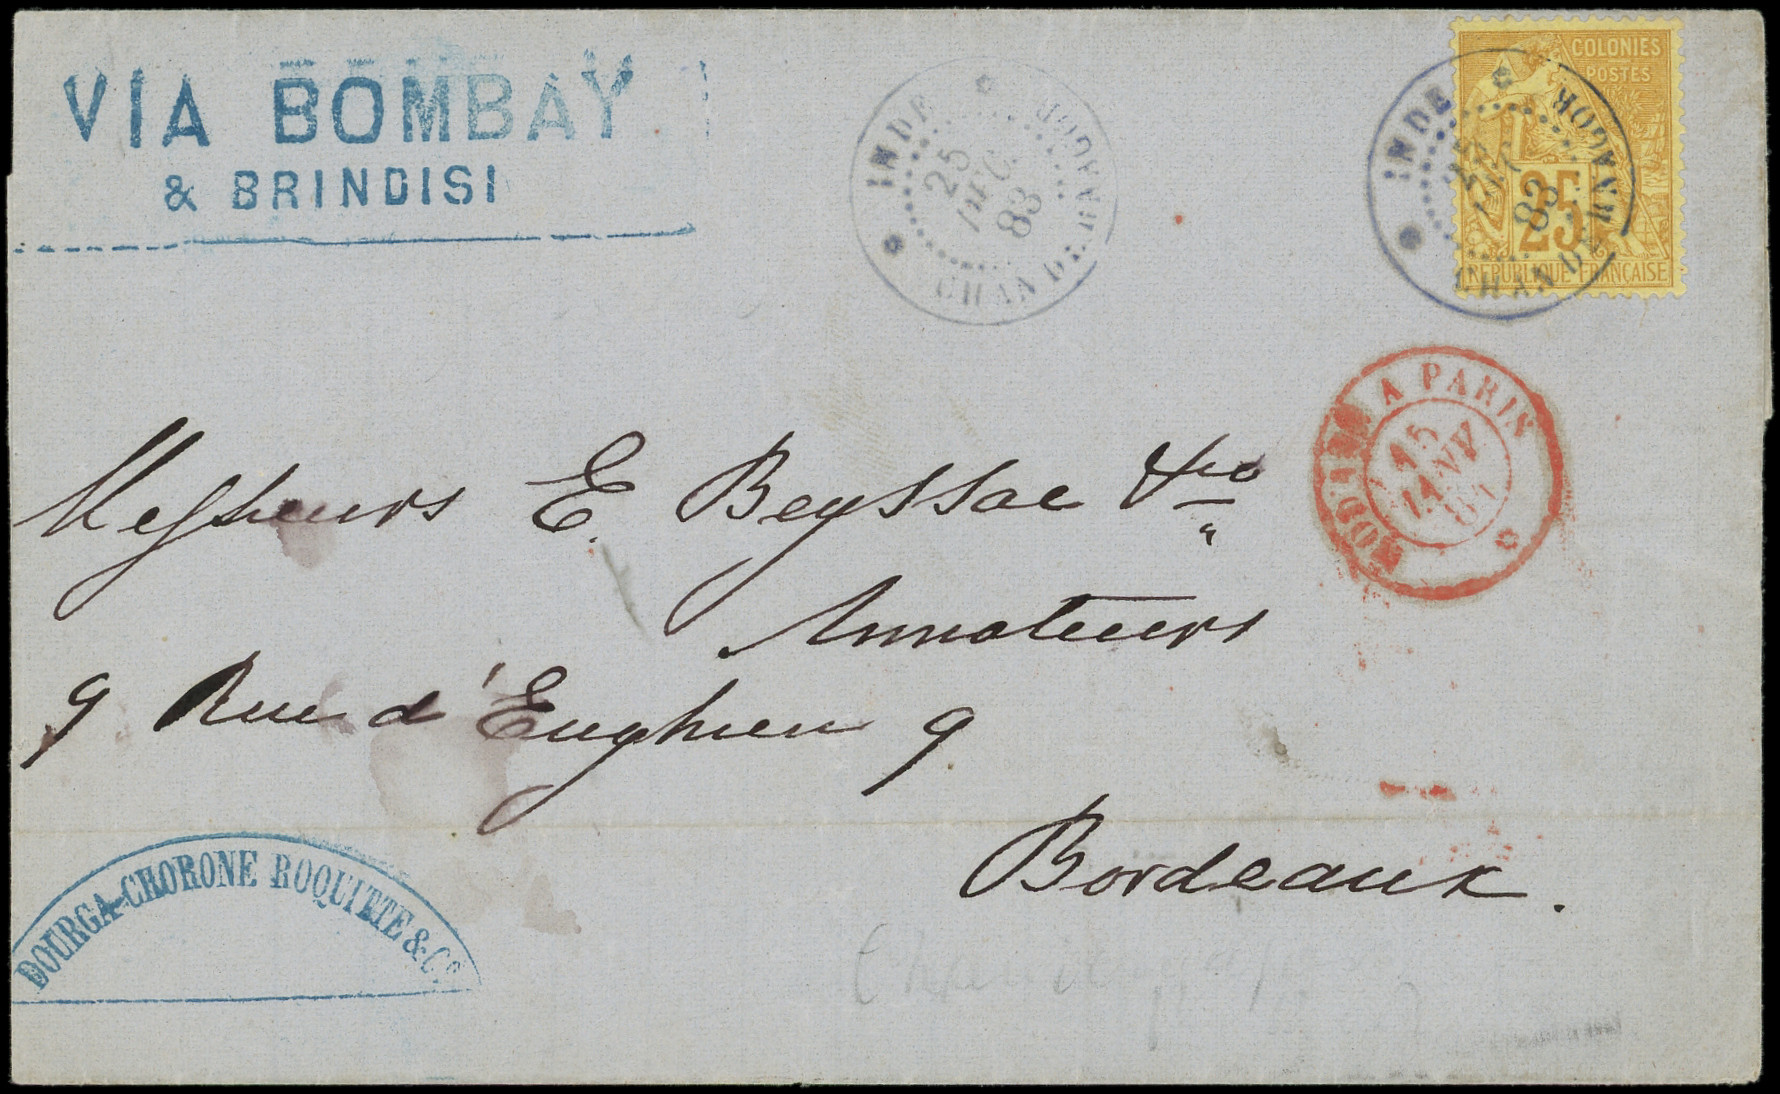 VIA BOMBAY
& BRINDISI
INDE
25
DEC.
83
CHANDERNAGOR
COLONIES
POSTES
25
REPUBLIQUE FRANÇAISE
INDE
25
DEC
83
CHANDERNAGOR
MODANE A PARIS
15
JANV
84
Messieurs E. Beyssac & Co
Armateurs
9 Rue d'Enghien 9
Bordeaux.
DOURGA-CHORONE ROQUITTE & Co